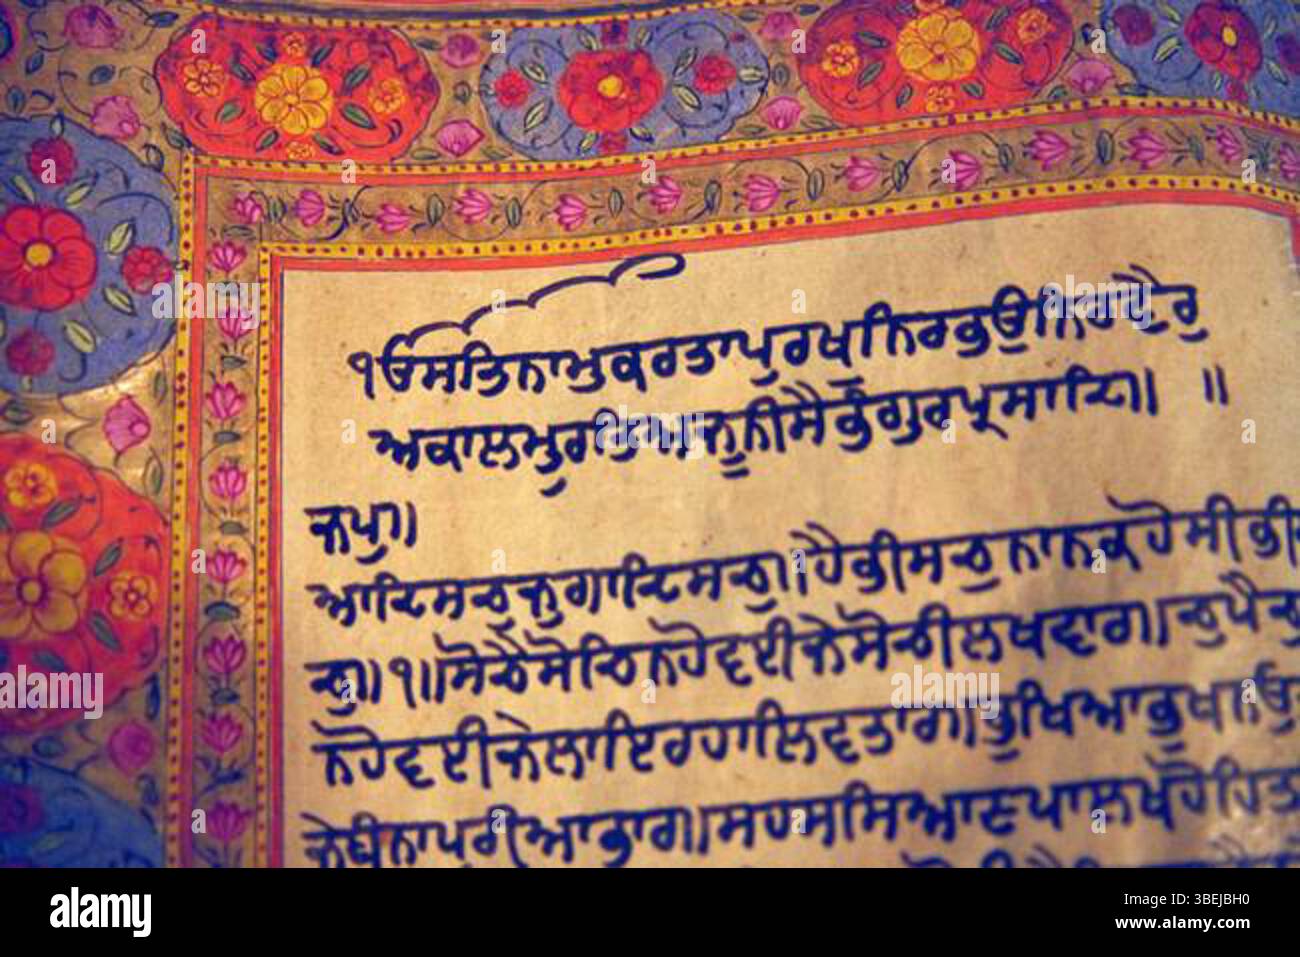 ੴਸਤਿਨਾਮੁਕਰਤਾਪੁਰਖੁਨਿਰਭਉਨਿਰਵੈਰੁ
ਅਕਾਲਮੂਰਤਿਅਜੂਨੀਸੈਭੰਗੁਰਪ੍ਰਸਾਦਿ॥ ॥
ਜਪੁ॥
ਆਦਿਸਚੁਜੁਗਾਦਿਸਚੁ॥ਹੈਭੀਸਚੁਨਾਨਕਹੋਸੀਭੀ
ਚੁ॥੧॥ਸੋਚੈਸੋਚਿਨਹੋਵਈਜੇਸੋਚੀਲਖਵਾਰ॥ਚੁਪੈਚੁ
ਨਹੋਵਈਜੇਲਾਇਰਹਾਲਿਵਤਾਰ॥ਭੁਖਿਆਭੁਖਨਉ
ਜੇਬੰਨਾਪੁਰੀਆਭਾਰ॥ਸਹਸਸਿਆਣਪਾਲਖਹੋਹਿਤ
alamy
Image ID: 3BEJBH0
www.alamy.com